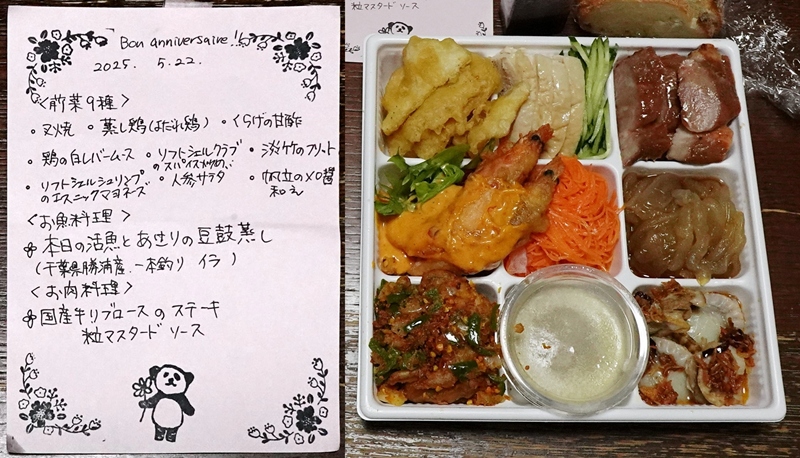 Bon anniversaire!!
2025. 5.22.
<前菜9種>
・叉焼 ・蒸し鶏(よだれ鶏) ・くらげの甘酢
・鶏の白レバームース ・ソフトシェルクラブのスパイス炒め ・淡竹のフリット
・ソフトシェルシュリンプのエスニックマヨネーズ ・人参サラダ ・帆立のXO醤和え
<お魚料理>
本日の活魚とあさりの豆鼓蒸し
(千葉県勝浦産.一本釣り イラ)
<お肉料理>
国産牛リブロースのステーキ
粒マスタード ソース
粒マスタード ソース